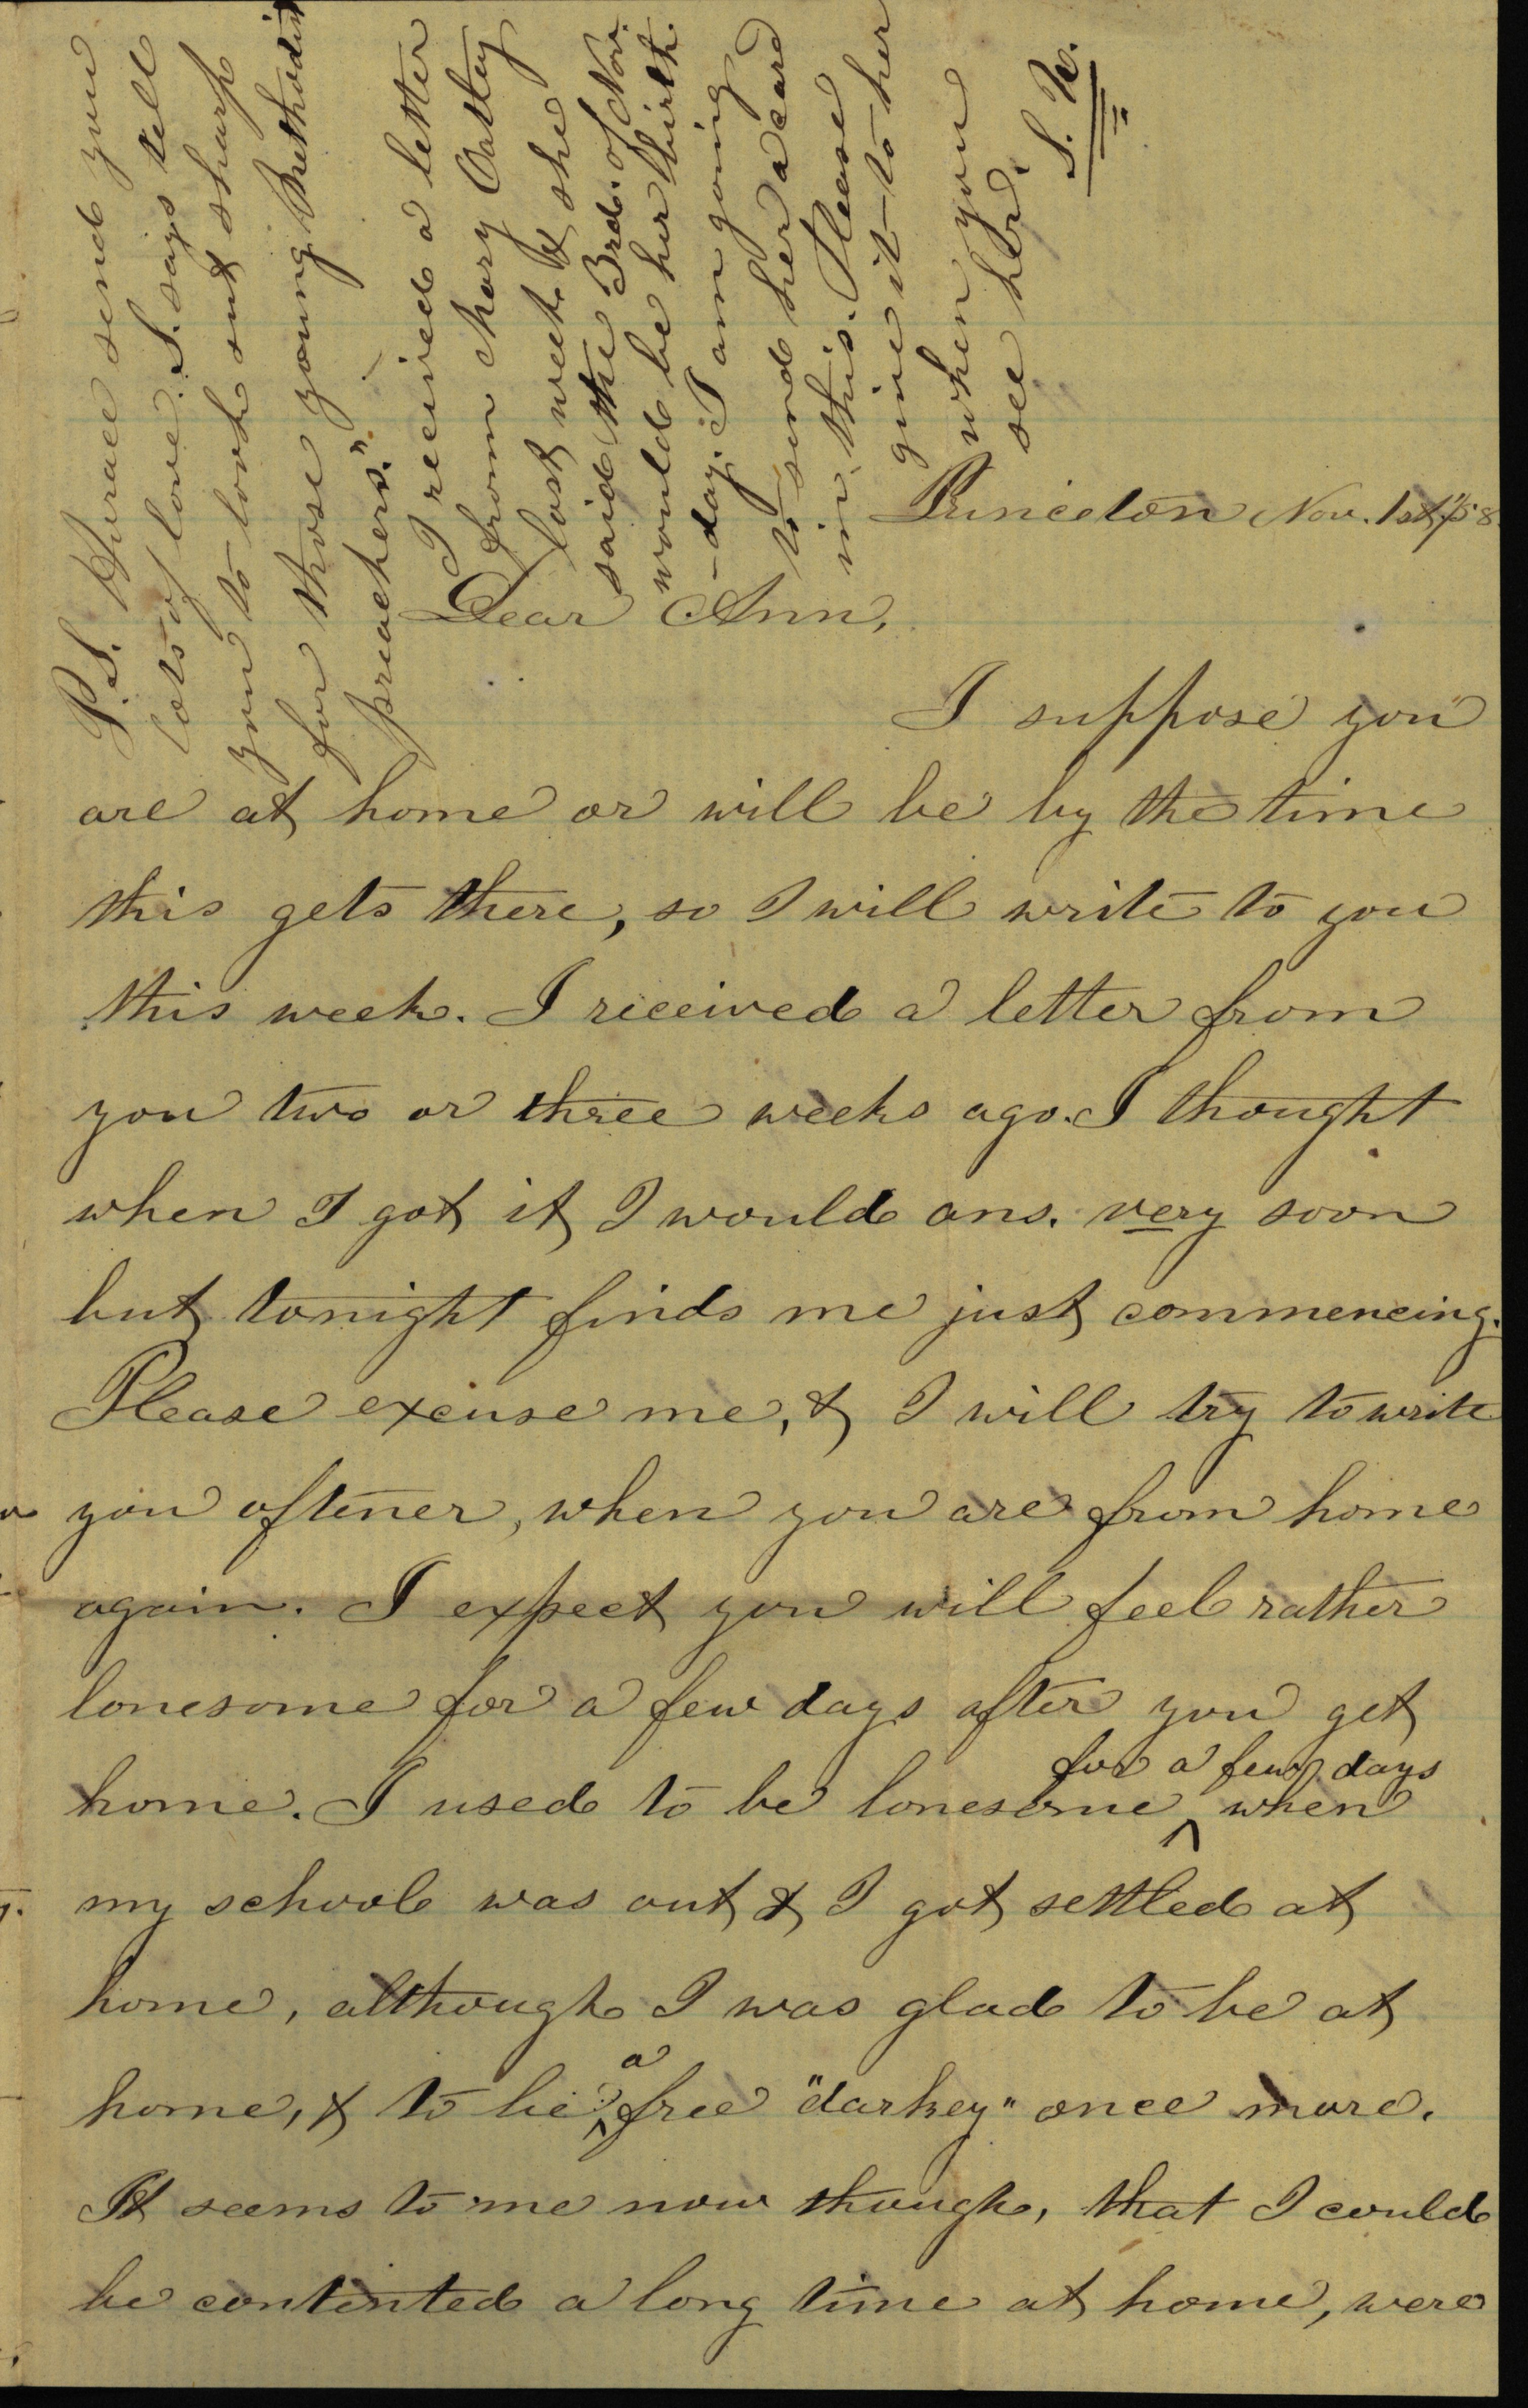 Princeton Nov. 1st, '58
Dear Ann,
I suppose you
are at home or will be by the time
this gets there, so I will write to you
this week. I received a letter from
you two or three weeks ago. I thought
when I got it I would ans. very soon
but tonight finds me just commencing.
Please excuse me, & I will try to write
you oftener, when you are from home
again. I expect you will feel rather
lonesome for a few days after you get
home. I used to be lonesome ^ for a few days when
my school was out & I got settled at
home, although I was glad to be at
home, & to be ^ a free "darkey" once more.
It seems to me now though, that I could
be contented a long time at home, were
P.S. Horace send you
lots of love. S. says tell
you to look out sharp
for those young Methodist
preachers."
I received a letter
from Mary Oatley
last week & she
said the 3rd. of Nov.
would be her birth
-day. I am going
to send her a card
in this. Please
give it to her
when you
see her.